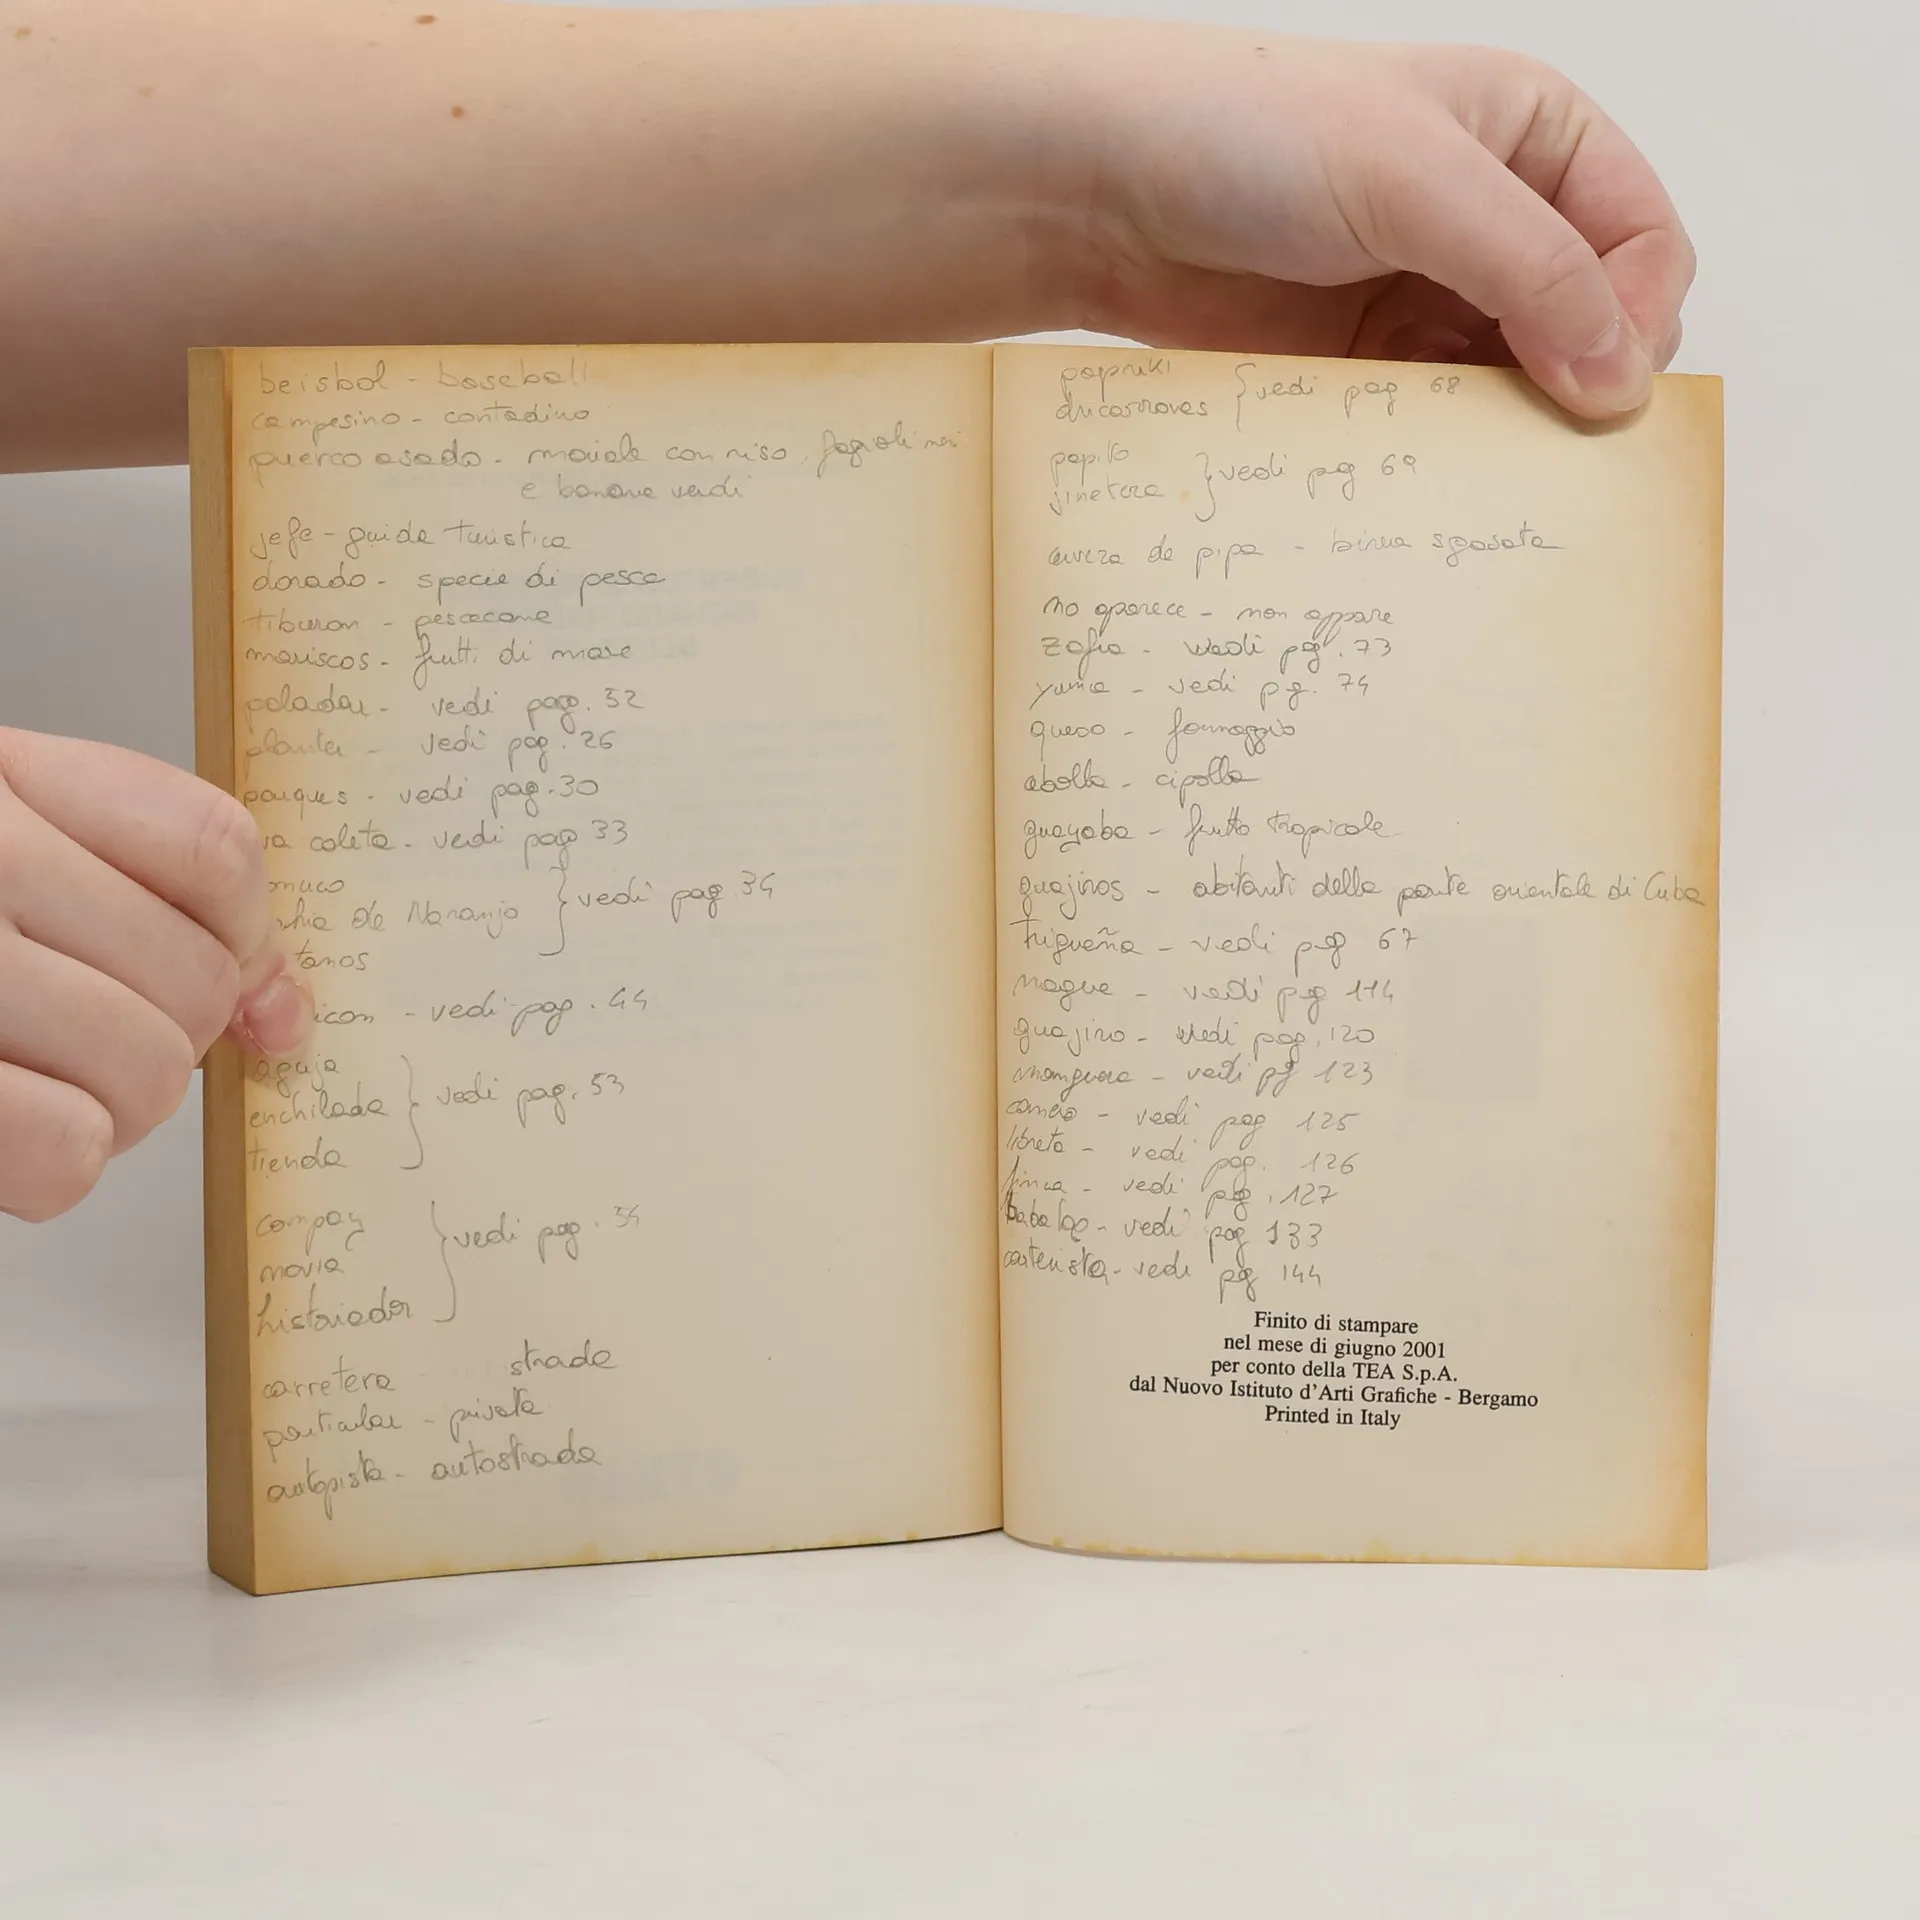 beisbol - baseball
campesino - contadino
puerco asado - maiale con riso, fagioli neri
e banane verdi
jefe - guida turistica
dorado - specie di pesce
tiburon - pescecane
mariscos - frutti di mare
paladar - vedi pag. 52
planter - vedi pag. 26
parques - vedi pag. 30
coleta - vedi pag 33
vedi pag 34
de Naranjo
tanos
- vedi pag. 44
aguja
enchilada
tienda
vedi pag. 53
compay
novia
historiador
vedi pag.
carretera strada
particular - privata
autopista - autostrada
papriki
vedi pag 68
papito
jinetera
vedi pag 69
de pipa - birra sgasata
no aparece - non appare
zafra - vedi pag. 73
yuma - vedi pg. 74
queso - formaggio
cipolla
guayaba - frutto tropicale
guajiros - abitanti della parte orientale di Cuba
trigueña - vedi pag 67
vedi pag 114
guajiro - vedi pag. 120
vedi pg 123
vedi pag 125
libreta - vedi pag. 126
finca - vedi pag. 127
vedi pag 133
carterista - vedi pg 144
Finito di stampare
nel mese di giugno 2001
per conto della TEA S.p.A.
dal Nuovo Istituto d'Arti Grafiche - Bergamo
Printed in Italy